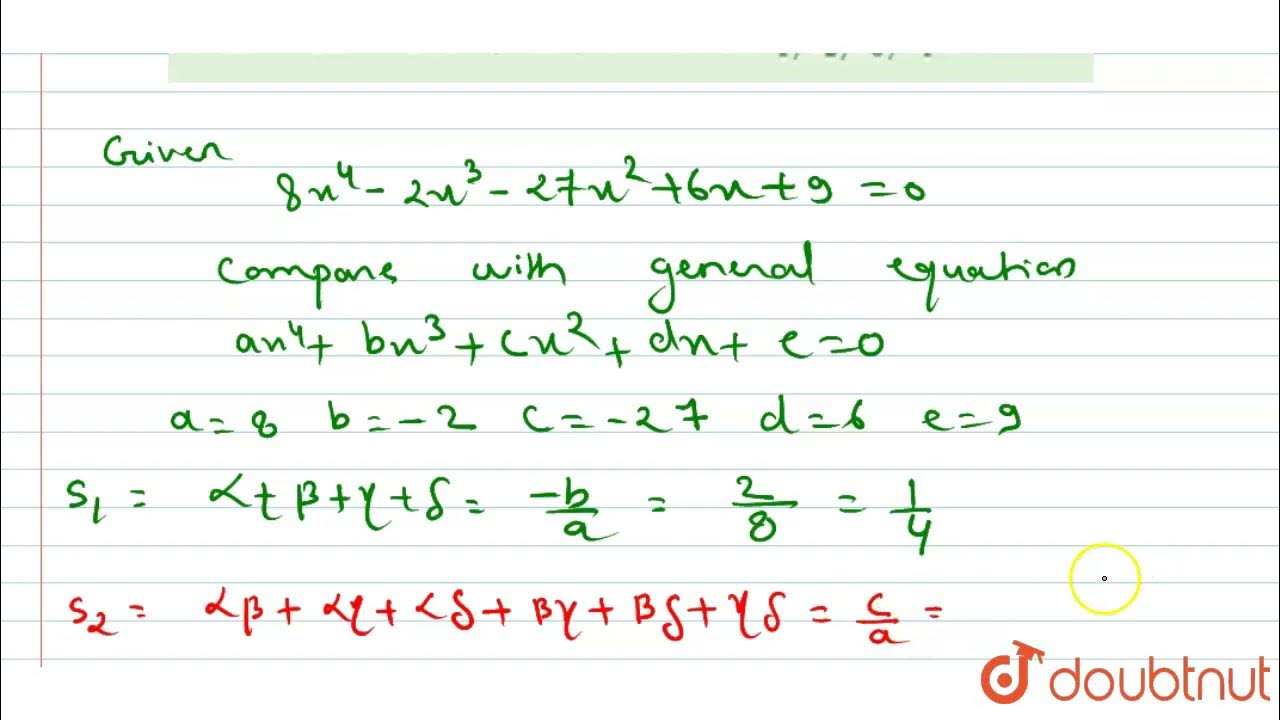 Given
8x⁴ - 2x³ - 27x² + 6x + 9 = 0
compare with general equation
ax⁴ + bx³ + cx² + dx + e = 0
a = 8 b = -2 c = -27 d = 6 e = 9
S₁ = α + β + γ + δ = -b/a = 2/8 = 1/4
S₂ = αβ + αγ + αδ + βγ + βδ + γδ = c/a =
doubtnut